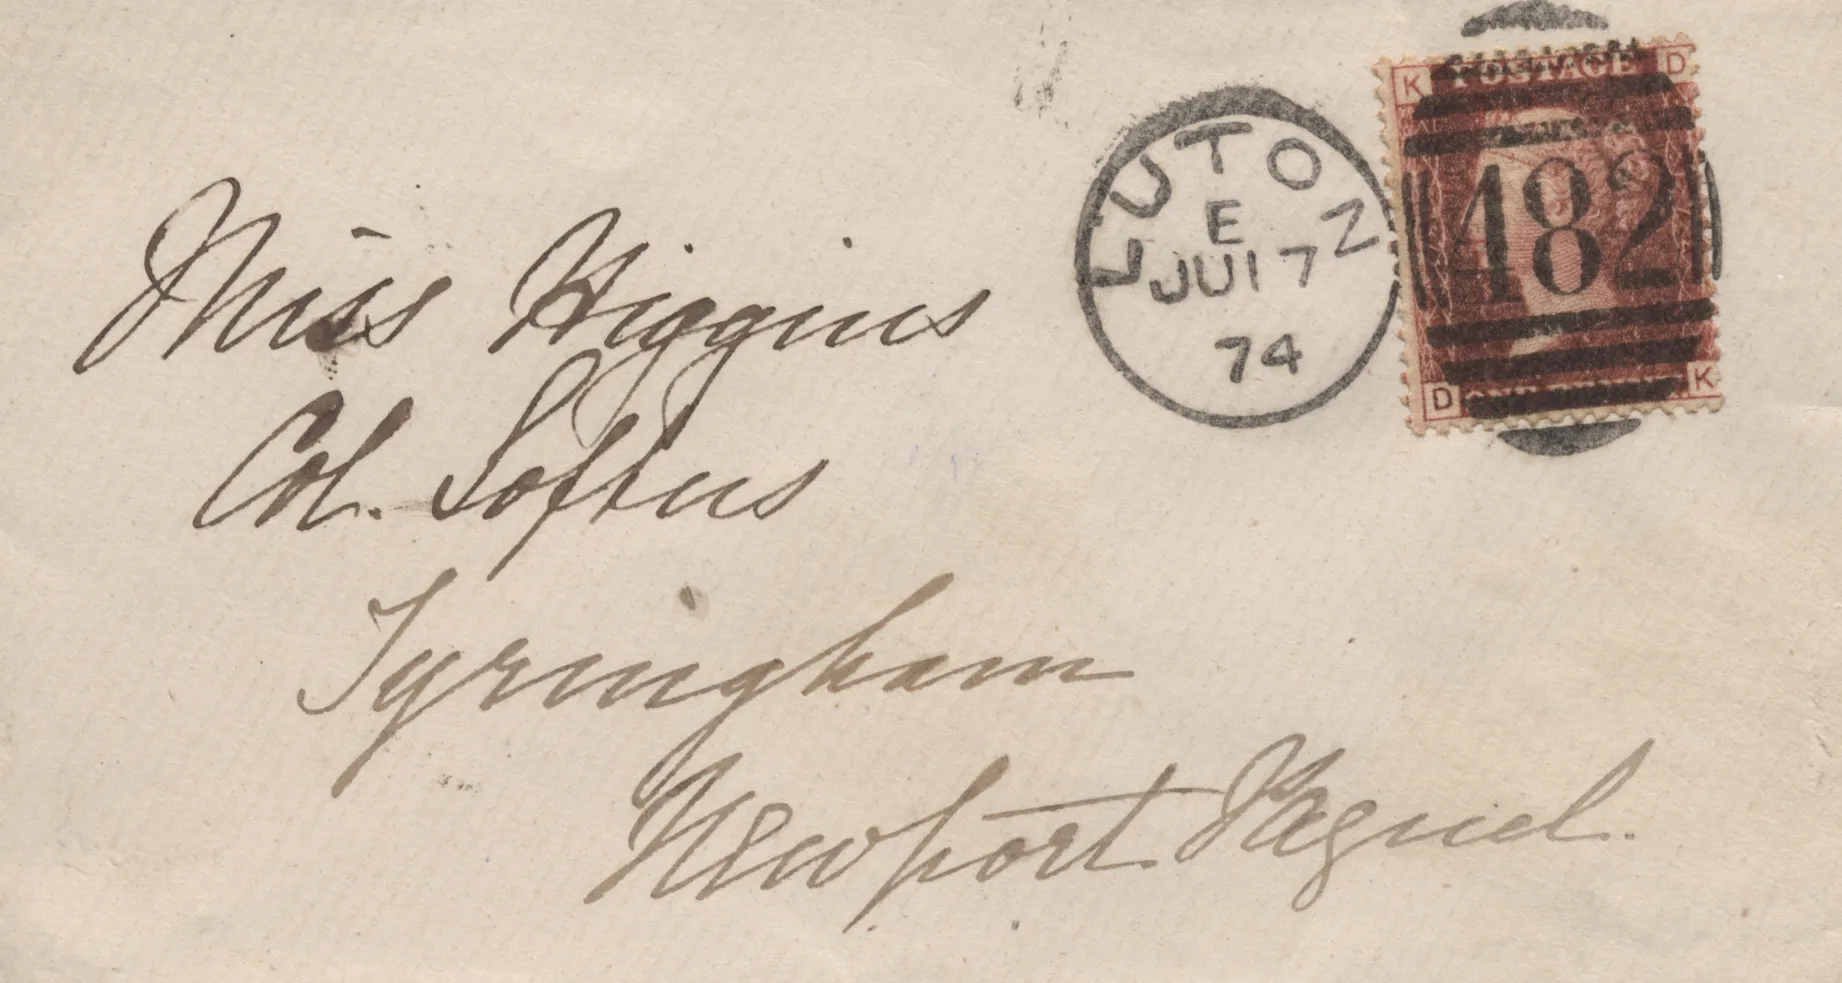 Miss Higgins
Col. Loftus
Tyringham
Newport Pagnel.
LUTON
E
JU 17
74
K POSTAGE D
482
D ONE PENNY K